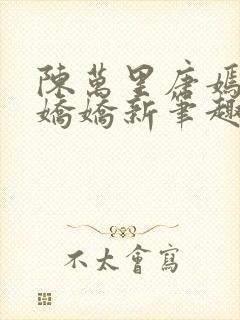 陳萬里唐嫣
嬌嬌新筆趣
不太會寫